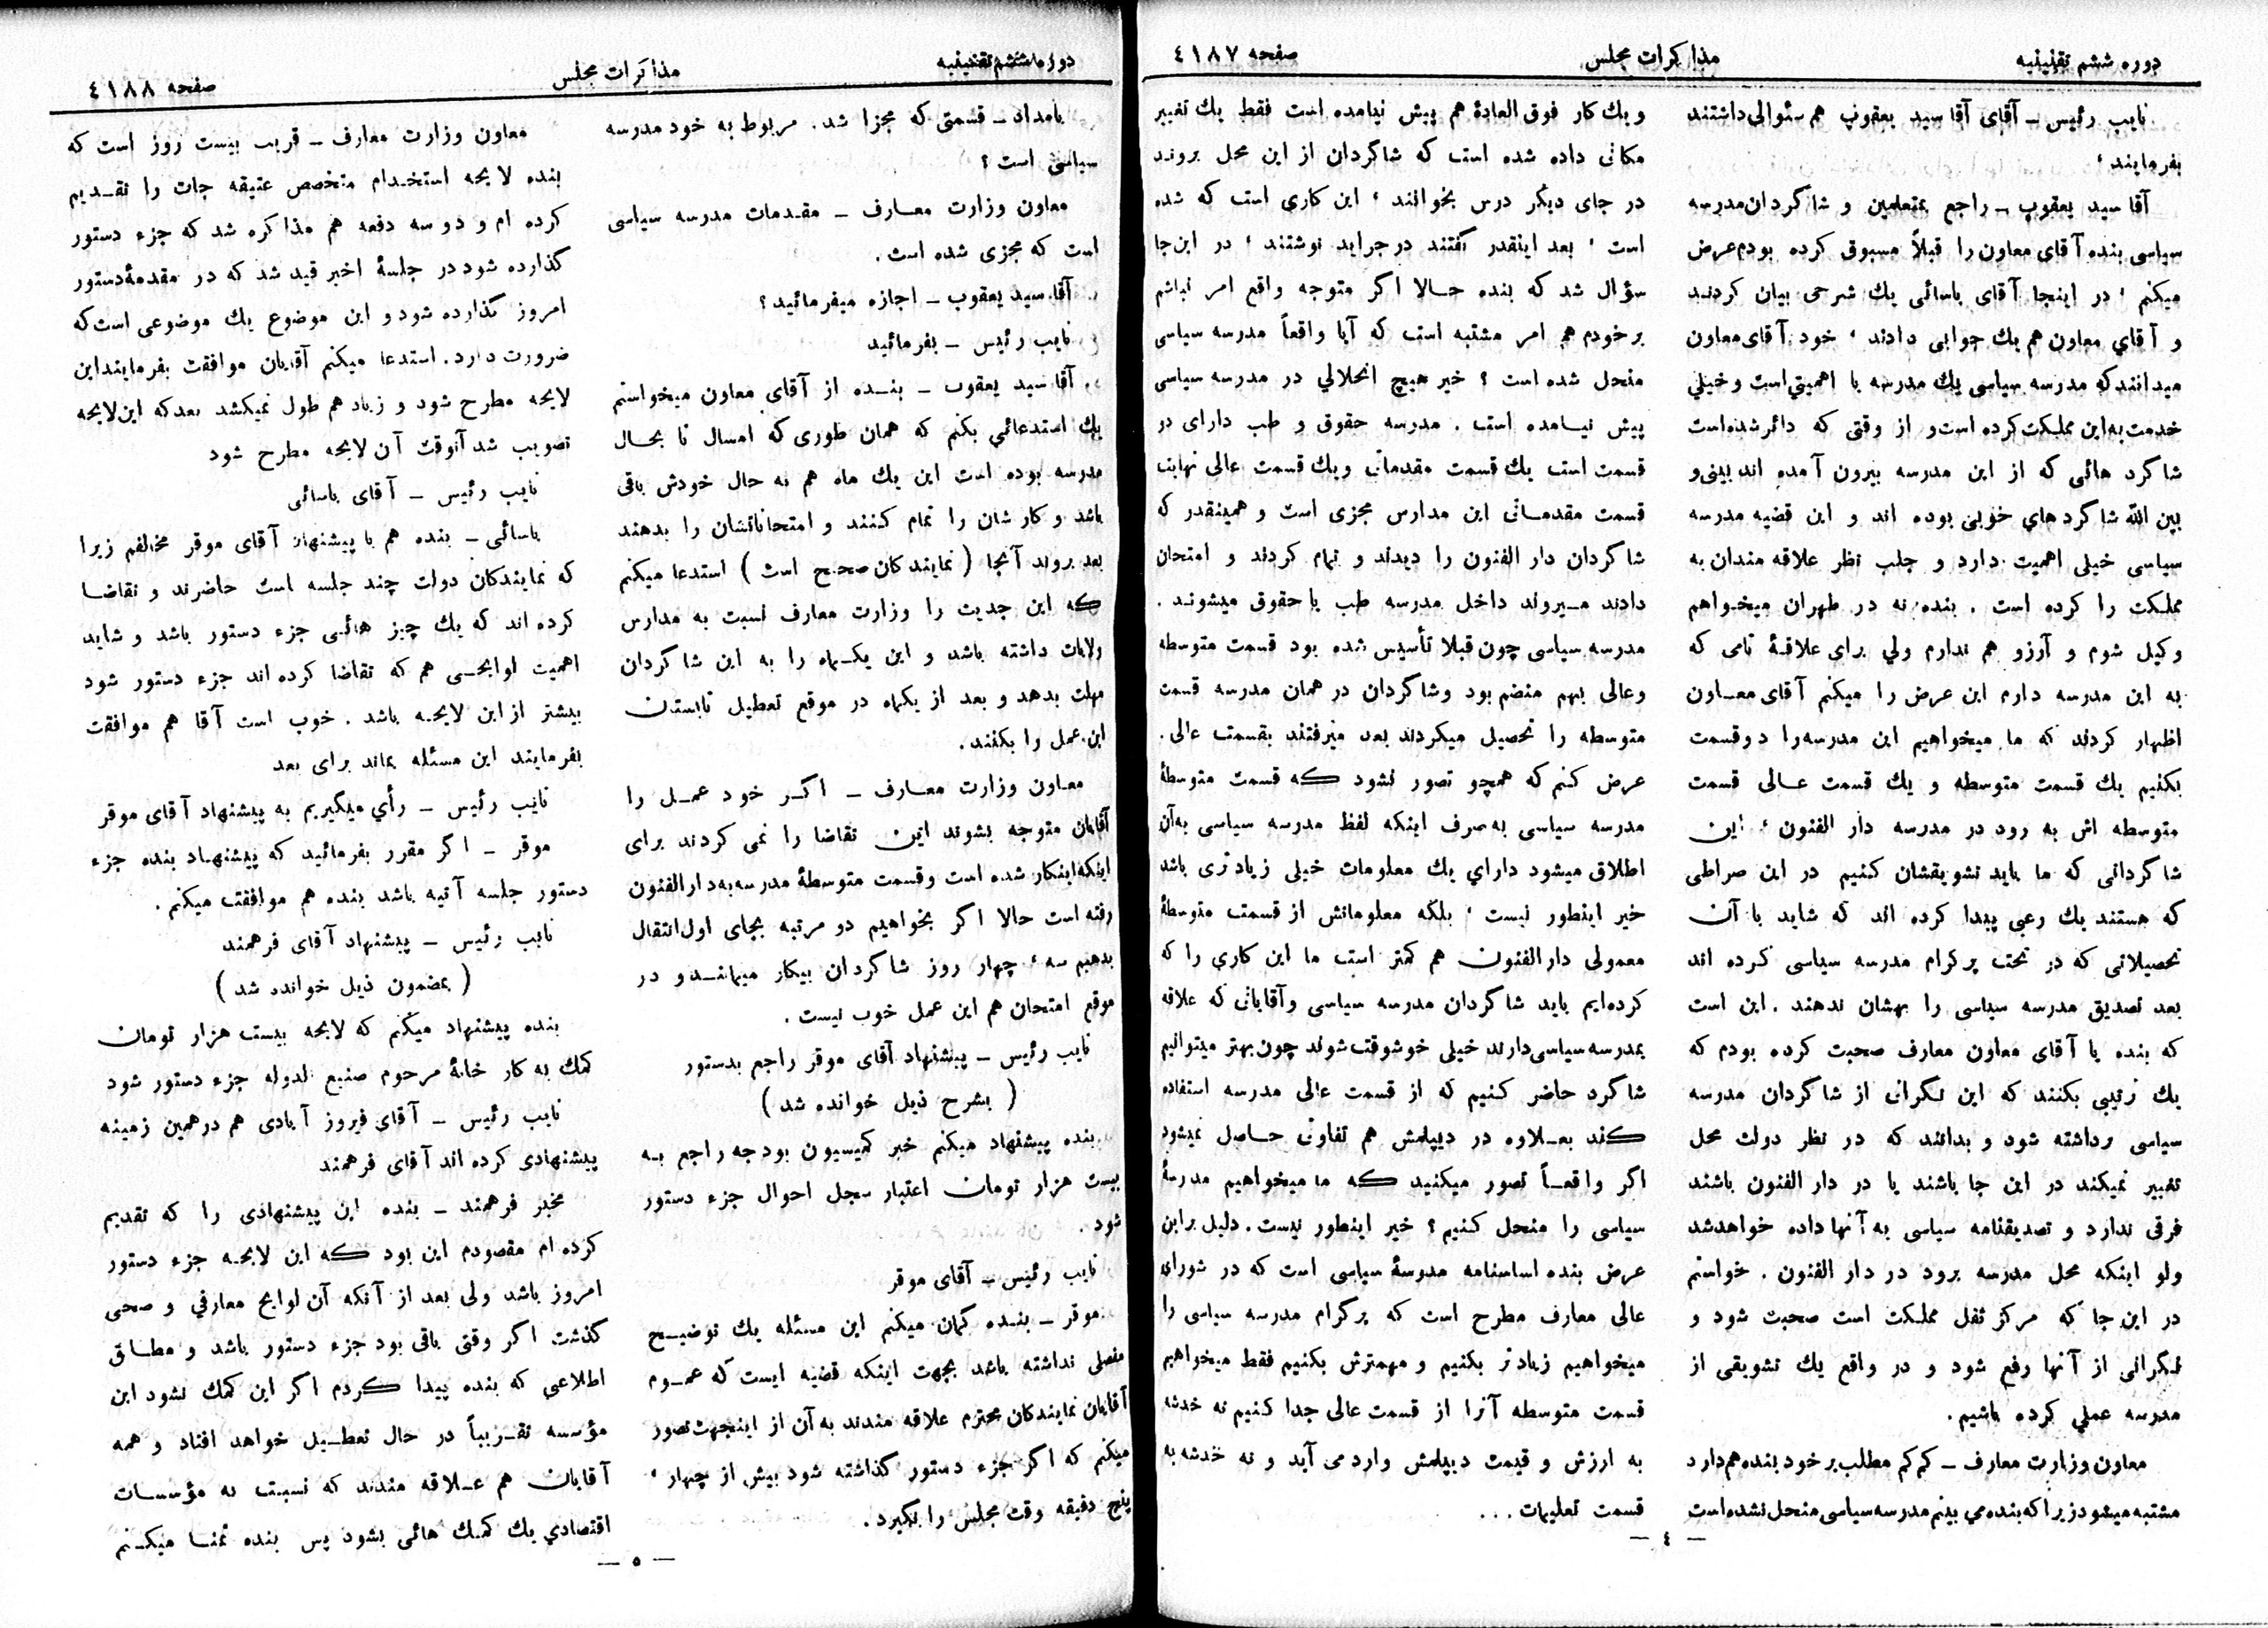 دوره ششم تقنینیه
مذاکرات مجلس
صفحه ٤١٨٧
نایب رئیس ـ آقای آقا سید یعقوب هم سئوالی داشتند
بفرمایند؛
آقا سید یعقوب ـ راجع بمتعلمین و شاگردان مدرسه
سیاسی بنده آقای معاون را قبلاً مسبوق کرده بودم عرض
میکنم ؛ در اینجا آقای یاسائی یك شرحی بیان کردند
و آقاي معاون هم یك جوابی دادند ؛ خود آقای معاون
میدانند که مدرسه سیاسی یك مدرسه با اهمیتي است و خیلي
خدمت به این مملکت کرده است و از وقتی که دائر شده است
شاگرد هائی که از این مدرسه بیرون آمده اند بینی و
بین الله شاگردهاي خوبی بوده اند و این قضیه مدرسه
سیاسی خیلی اهمیت دارد و جلب نظر علاقه مندان به
مملکت را کرده است . بنده نه در طهران میخواهم
وکیل شوم و آرزو هم ندارم ولي برای علاقهٔ تامی که
به این مدرسه دارم این عرض را میکنم آقای معاون
اظهار کردند که ما میخواهیم این مدرسه را دو قسمت
بکنیم یك قسمت متوسطه و یك قسمت عالی قسمت
متوسطه اش به رود در مدرسه دار الفنون ؛ این
شاگردانی که ما باید تشویقشان کنیم در این صراطی
که هستند یك رعبی پیدا کرده اند که شاید با آن
تحصیلاتی که در تحت پرگرام مدرسه سیاسی کرده اند
بعد تصدیق مدرسه سیاسی را بهشان ندهند . این است
که بنده با آقای معاون معارف صحبت کرده بودم که
یك ترتیبی بکنند که این نگرانی از شاگردان مدرسه
سیاسی برداشته شود و بدانند که در نظر دولت محل
تغییر نمیکند در این جا باشند یا در دار الفنون باشند
فرقی ندارد و تصدیقنامه سیاسی به آنها داده خواهد شد
ولو اینکه محل مدرسه برود در دار الفنون . خواستم
در این جا که مرکز ثقل مملکت است صحبت شود و
نگرانی از آنها رفع شود و در واقع یك تشویقی از
مدرسه عملي کرده باشیم.
معاون وزارت معارف ـ کم کم مطلب بر خود بنده هم دارد
مشتبه میشود زیرا که بنده می بینم مدرسه سیاسی منحل نشده است
و یك کار فوق العادهٔ هم پیش نیامده است فقط یك تغییر
مکانی داده شده است که شاگردان از این محل بروند
در جای دیگر درس بخوانند ؛ این کاری است که شده
است ؛ بعد اینقدر گفتند در جراید نوشتند ؛ در این جا
سؤال شد که بنده حالا اگر متوجه واقع امر نباشم
بر خودم هم امر مشتبه است که آیا واقعاً مدرسه سیاسی
منحل شده است ؟ خیر هیچ انحلالي در مدرسه سیاسی
پیش نیامده است . مدرسه حقوق و طب دارای دو
قسمت است یك قسمت مقدماتی و یك قسمت عالی نهایت
قسمت مقدماتی این مدارس مجزی است و همینقدر که
شاگردان دار الفنون را دیدند و تمام کردند و امتحان
دادند میروند داخل مدرسه طب یا حقوق میشوند .
مدرسه سیاسی چون قبلا تأسیس شده بود قسمت متوسطه
و عالی بهم منضم بود و شاگردان در همان مدرسه قسمت
متوسطه را تحصیل میکردند بعد میرفتند بقسمت عالی.
عرض کنم که همچو تصور نشود که قسمت متوسطهٔ
مدرسه سیاسی به صرف اینکه لفظ مدرسه سیاسی به آن
اطلاق میشود داراي یك معلومات خیلی زیادتری باشد
خیر اینطور نیست ؛ بلکه معلوماتش از قسمت متوسطهٔ
معمولی دار الفنون هم کمتر است ما این کاری را که
کرده‌ایم باید شاگردان مدرسه سیاسی و آقایانی که علاقه
بمدرسه سیاسی دارند خیلی خوشوقت شوند چون بهتر میتوانیم
شاگرد حاضر کنیم که از قسمت عالی مدرسه استفاده
کند بعلاوه در دیپلمش هم تفاوتی حاصل نمیشود
اگر واقعاً تصور میکنید که ما میخواهیم مدرسهٔ
سیاسی را منحل کنیم ؟ خیر اینطور نیست . دلیل بر این
عرض بنده اساسنامه مدرسهٔ سیاسی است که در شورای
عالی معارف مطرح است که پرگرام مدرسه سیاسی را
میخواهیم زیادتر بکنیم و مهمترش بکنیم فقط میخواهیم
قسمت متوسطه آنرا از قسمت عالی جدا کنیم نه خدشه
به ارزش و قیمت دیپلمش وارد می آید و نه خدشه به
قسمت تعلیمات ...
— ٤ —
دوره ششم تقنینیه
مذاکرات مجلس
صفحه ٤١٨٨
بامداد ـ قسمتی که مجزا شد. مربوط به خود مدرسه
سیاسی است ؟
معاون وزارت معارف ـ مقدمات مدرسه سیاسی
است که مجزی شده است .
آقا سید یعقوب ـ اجازه میفرمائید ؟
نایب رئیس ـ بفرمائید
آقا سید یعقوب ـ بنده از آقای معاون میخواستم
یك استدعائي بکنم که همان طوری که امسال تا بحال
مدرسه بوده است این یك ماه هم به حال خودش باقی
باشد و کارشان را تمام کنند و امتحاناتشان را بدهند
بعد بروند آنجا ( نمایندگان صحیح است ) استدعا میکنم
که این جدیت را وزارت معارف نسبت به مدارس
ولایات داشته باشد و این یکماه را به این شاگردان
مهلت بدهد و بعد از یکماه در موقع تعطیل تابستان
این عمل را بکنند.
معاون وزارت معارف ـ اگر خود عمل را
آقایان متوجه بشوند این تقاضا را نمی کردند برای
اینکه اینکار شده است و قسمت متوسطهٔ مدرسه به دارالفنون
رفته است حالا اگر بخواهیم دو مرتبه بجای اول انتقال
بدهیم سه ؛ چهار روز شاگردان بیکار میمانند و در
موقع امتحان هم این عمل خوب نیست .
نایب رئیس ـ پیشنهاد آقای موقر راجع بدستور
( بشرح ذیل خوانده شد )
بنده پیشنهاد میکنم خبر کمیسیون بودجه راجع به
بیست هزار تومان اعتبار سجل احوال جزء دستور
شود .
نایب رئیس ـ آقای موقر
موقر ـ بنده گمان میکنم این مسئله یك توضیح
مفصلی نداشته باشد بجهت اینکه قضیه ایست که عموم
آقایان نمایندگان محترم علاقه مندند به آن از اینجهت تصور
میکنم که اگر جزء دستور گذاشته شود بیش از چهار ؛
پنج دقیقه وقت مجلس را نگیرد.
معاون وزارت معارف ـ قریب بیست روز است که
بنده لایحه استخدام متخصص عتیقه جات را تقدیم
کرده ام و دو سه دفعه هم مذاکره شد که جزء دستور
گذارده شود در جلسهٔ اخیر قید شد که در مقدمهٔ دستور
امروز گذارده شود و این موضوع یك موضوعی است که
ضرورت دارد . استدعا میکنم آقایان موافقت بفرمایند این
لایحه مطرح شود و زیاد هم طول نمیکشد بعد که این لایحه
تصویب شد آنوقت آن لایحه مطرح شود
نایب رئیس ـ آقای یاسائی
یاسائی ـ بنده هم با پیشنهاد آقای موقر مخالفم زیرا
که نمایندگان دولت چند جلسه است حاضرند و تقاضا
کرده اند که یك چیز هائی جزء دستور باشد و شاید
اهمیت لوایحی هم که تقاضا کرده اند جزء دستور شود
بیشتر از این لایحه باشد . خوب است آقا هم موافقت
بفرمایند این مسئله بماند برای بعد
نایب رئیس ـ رأي میگیریم به پیشنهاد آقای موقر
موقر ـ اگر مقرر بفرمائید که پیشنهاد بنده جزء
دستور جلسه آتیه باشد بنده هم موافقت میکنم .
نایب رئیس ـ پیشنهاد آقای فرهمند
( بمضمون ذیل خوانده شد )
بنده پیشنهاد میکنم که لایحه بیست هزار تومان
کمك به کار خانهٔ مرحوم صنیع الدوله جزء دستور شود
نایب رئیس ـ آقای فیروز آبادی هم در همین زمینه
پیشنهادی کرده اند آقای فرهمند
مخبر فرهمند ـ بنده این پیشنهادی را که تقدیم
کرده ام مقصودم این بود که این لایحه جزء دستور
امروز باشد ولی بعد از آنکه آن لوایح معارفي و صحی
گذشت اگر وقتی باقی بود جزء دستور باشد و مطابق
اطلاعي که بنده پیدا کردم اگر این کمك نشود این
مؤسسه تقریباً در حال تعطیل خواهد افتاد و همه
آقایان هم علاقه مندند که نسبت به مؤسسات
اقتصادي یك کمك هائی بشود پس بنده تمنا میکنم
— ٥ —